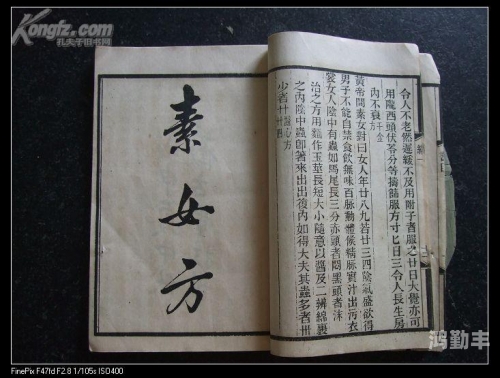 Kongfz.com
孔夫子旧书网
令人不老然遲緩不及用附子者服之廿日大覺亦可
用隴西頭伏苓分等擣篩服方寸匕日三令人長生房
內不衰千金方
黃帝問素女對曰女人年廿八九若廿三四陰氣盛欲得
男子不能自禁食飲無味百脈動體候精脈實汁出污衣
裳女人陰中有蟲如馬尾長三分赤頭者悶黑頭者沫
治之方用麵作玉莖長短大小隨意以醬及二辨綿裹
之內陰中蟲即著來出出復內如得大夫其蟲多者卅
少者廿醫心方
素女方
鸿勤丰
FinePix F47fd F2.8 1/105s ISO400